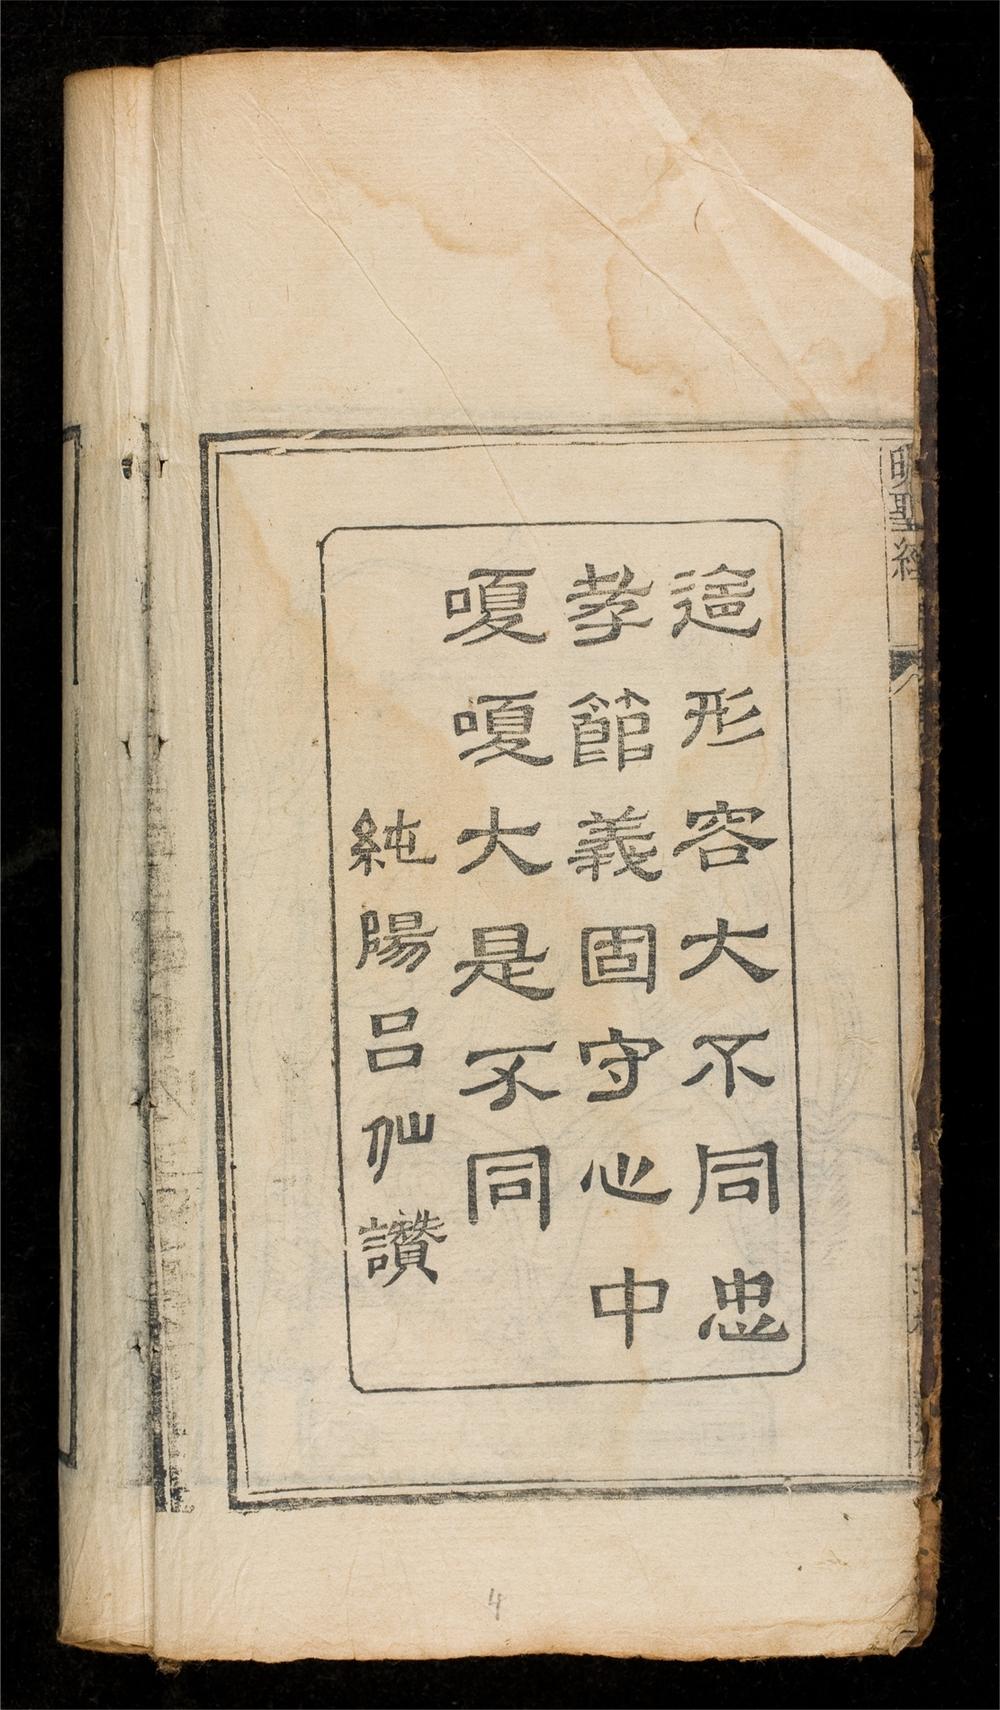 明聖經
這形容大不同忠
孝節義固守心中
嗄嗄大是不同
純陽呂仙讚
4